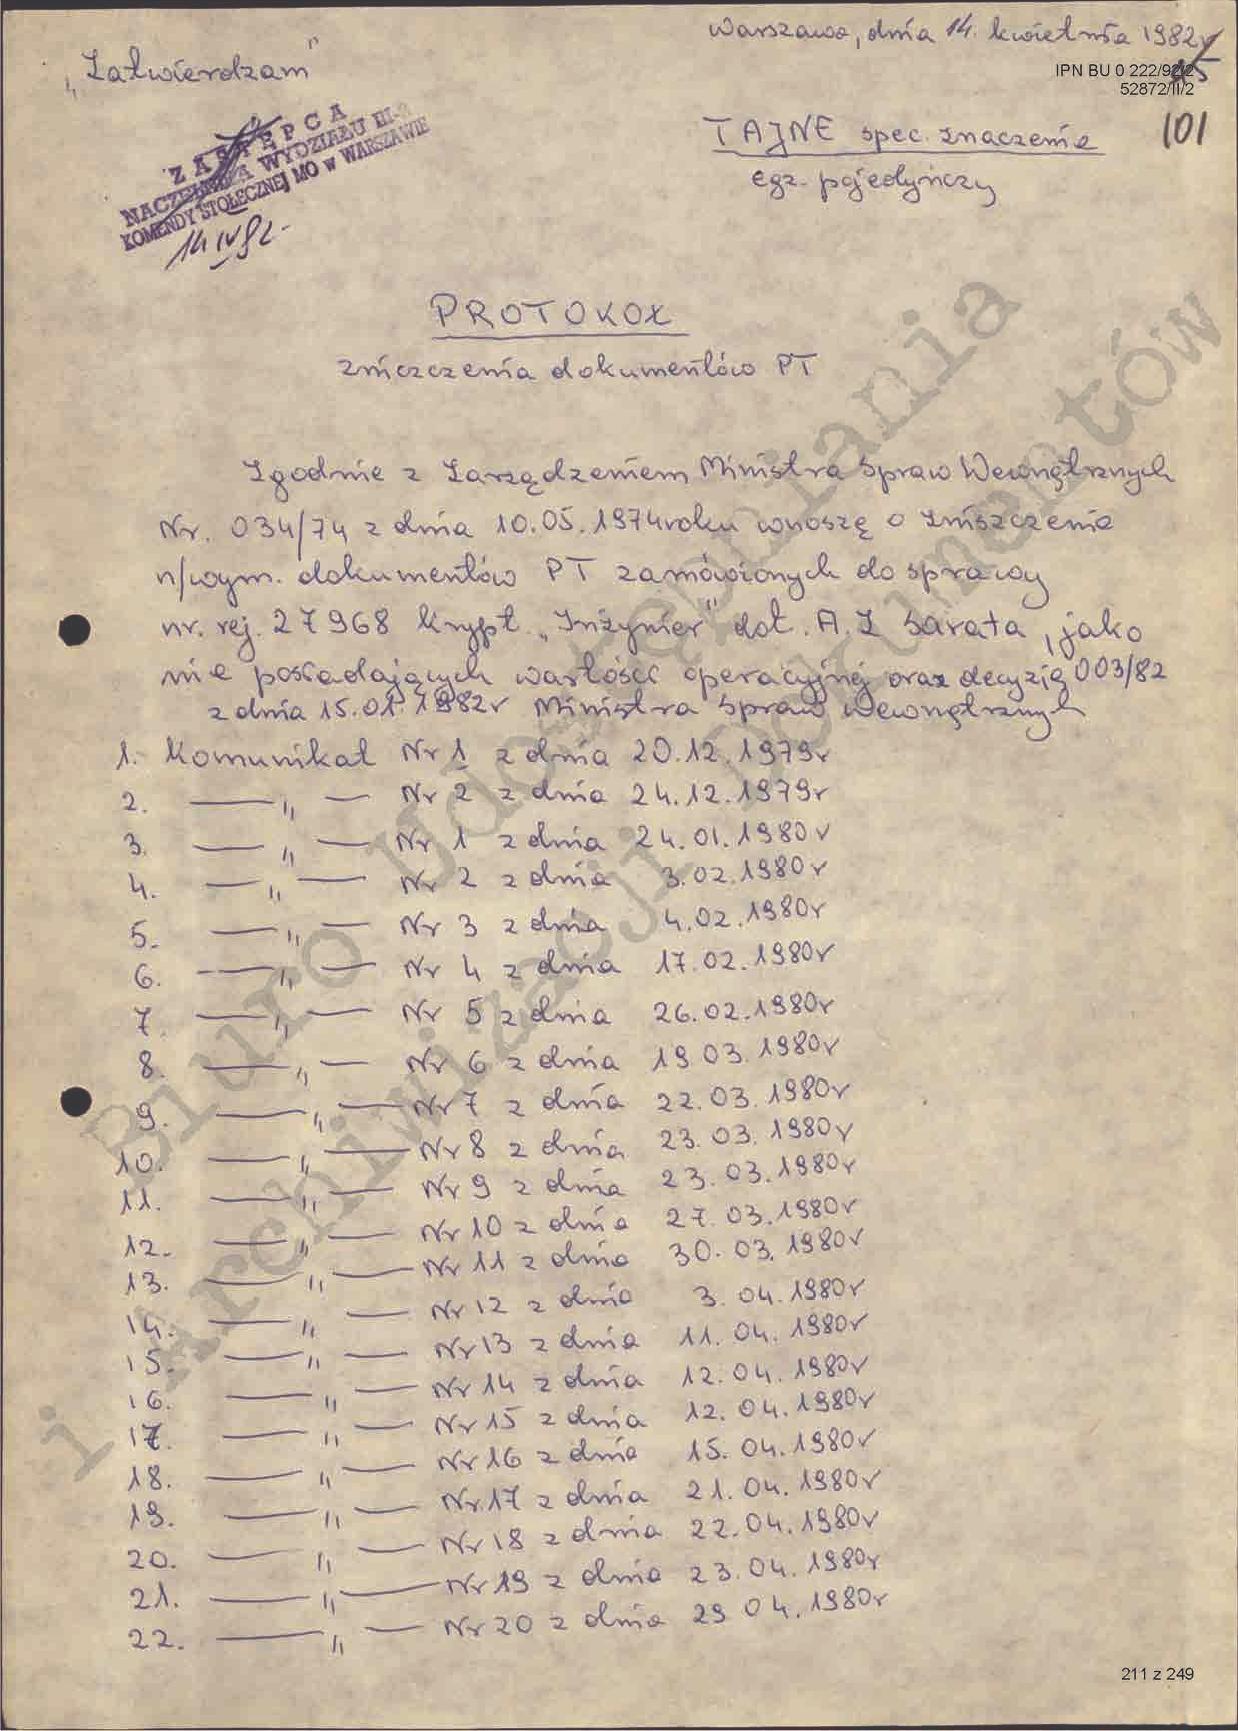 Warszawa, dnia 14. kwietnia 1982r
"Zatwierdzam"
IPN BU 0 222/92/2
52872/II/2
101
ZASTĘPCA
NACZELNIKA WYDZIAŁU III-2
KOMENDY STOŁECZNEJ MO w WARSZAWIE
14 IV 82.
TAJNE spec. znaczenia
egz. pojedyńczy
PROTOKÓŁ
zniszczenia dokumentów PT
Zgodnie z Zarządzeniem Ministra Spraw Wewnętrznych
Nr. 034/74 z dnia 10.05.1974 roku wnoszę o zniszczenie
n/wym. dokumentów PT zamówionych do sprawy
nr. rej. 27968 krypt. "Inżynier" dot. A. Z Sarata, jako
nie posiadających wartości operacyjnej oraz decyzją 003/82
z dnia 15.01.1982r Ministra Spraw Wewnętrznych
1. Komunikat Nr 1 z dnia 20.12.1979r
2. —"— Nr 2 z dnia 24.12.1979r
3. —"— Nr 1 z dnia 24.01.1980r
4. —"— Nr 2 z dnia 3.02.1980r
5. —"— Nr 3 z dnia 4.02.1980r
6. —"— Nr 4 z dnia 17.02.1980r
7. —"— Nr 5 z dnia 26.02.1980r
8. —"— Nr 6 z dnia 19.03.1980r
9. —"— Nr 7 z dnia 22.03.1980r
10. —"— Nr 8 z dnia 23.03.1980r
11. —"— Nr 9 z dnia 23.03.1980r
12. —"— Nr 10 z dnia 27.03.1980r
13. —"— Nr 11 z dnia 30.03.1980r
14. —"— Nr 12 z dnia 3.04.1980r
15. —"— Nr 13 z dnia 11.04.1980r
16. —"— Nr 14 z dnia 12.04.1980r
17. —"— Nr 15 z dnia 12.04.1980r
18. —"— Nr 16 z dnia 15.04.1980r
19. —"— Nr 17 z dnia 21.04.1980r
20. —"— Nr 18 z dnia 22.04.1980r
21. —"— Nr 19 z dnia 23.04.1980r
22. —"— Nr 20 z dnia 29 04.1980r
Biuro Udostępniania
i Archiwizacji Dokumentów
211 z 249